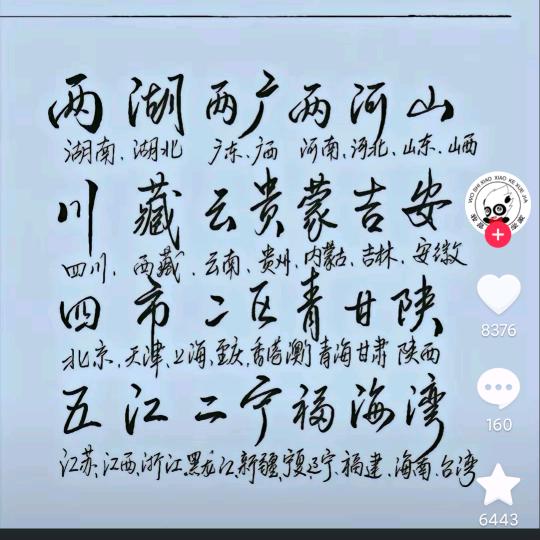 两湖两广两河山
湖南、湖北 广东、广西 河南、河北、山东、山西
川藏云贵蒙吉安
四川、西藏、云南、贵州、内蒙古、吉林、安徽
四市二区青甘陕
北京、天津、上海、重庆、香港澳门青海甘肃陕西
五江二宁福海湾
江苏、江西、浙江、黑龙江、新疆、宁夏、辽宁、福建、海南、台湾
WO SHI XIAO XIAO KE XUE JIA
8376
160
6443